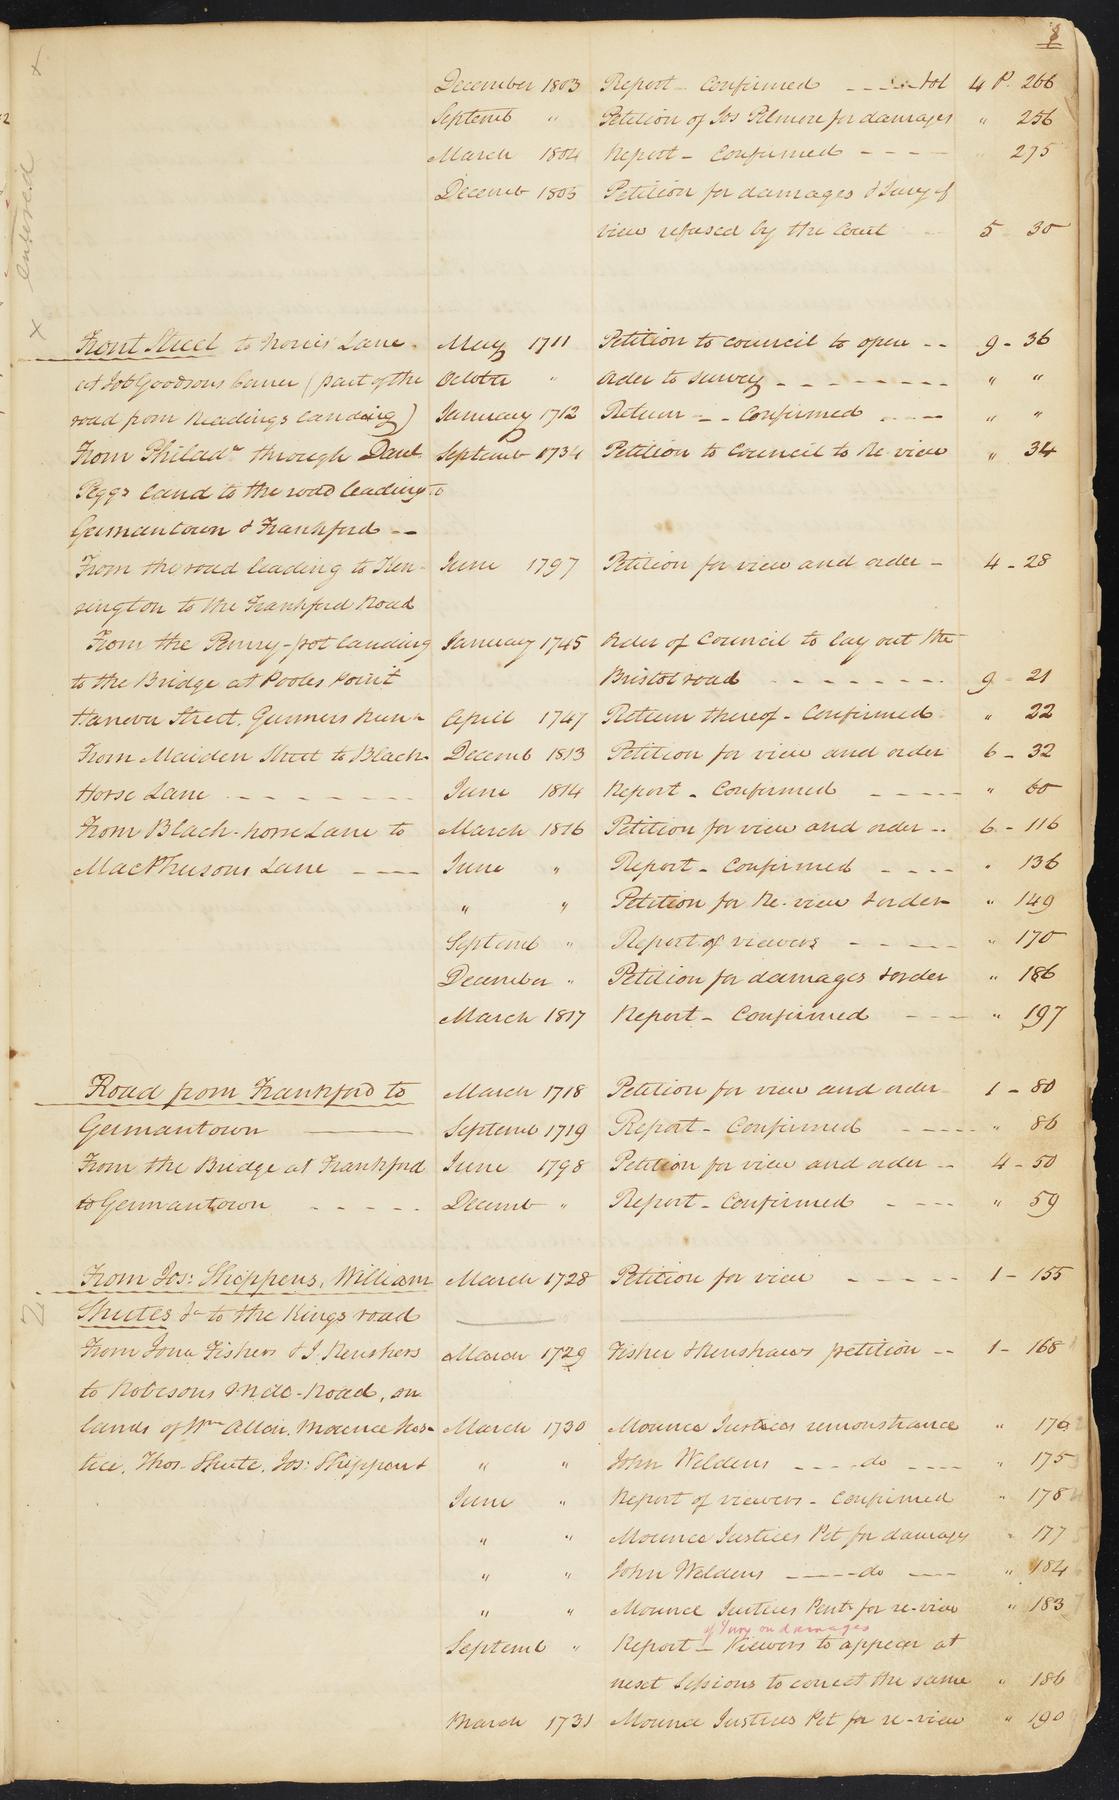 8
December 1803 Report - Confirmed - - - - Vol 4 P. 266
Septemb " Petition of Jos Pilmore for damages " 256
March 1804 Report - Confirmed - - - - " 275
Decemb 1805 Petition for damages & Jury of
view refused by the Court - - 5 - 30
x entered x
Front Street to Norris' Lane. May 1711 Petition to council to open - - 9 - 36
at Job Goodsons Corner (part of the October " Order to survey - - - - - - - - " "
road from Readings landing) January 1712 Return - - Confirmed - - - - " "
From Philad.a through Danl Septemb 1734 Petition to Council to Re-view " 34
Peggs land to the road leading to
Germantown & Frankford - -
From the road leading to Ken- June 1797 Petition for view and order - 4 - 28
sington to the Frankford Road
From the Penny-pot landing January 1745 Order of Council to lay out the
to the Bridge at Pooles Point Bristol road - - - - - - - 9 - 21
Hanover Street. Gunners Run - April 1747 Return thereof - Confirmed " 22
From Maiden Street to Black- Decemb 1813 Petition for view and order 6 - 32
Horse Lane - - - - - - - June 1814 Report - Confirmed - - - - - " 60
From Black-horse Lane to March 1816 Petition for view and order - - 6 - 116
MacPhersons Lane - - - - June " Report - Confirmed - - - - " 136
" " Petition for Re-view & order - " 149
Septemb " Report of viewers - - - - - " 170
December " Petition for damages & order " 186
March 1817 Report - Confirmed - - - " 197
Road from Frankford to March 1718 Petition for view and order 1 - 80
Germantown Septemb 1719 Report - Confirmed - - - - - " 86
From the Bridge at Frankford June 1798 Petition for view and order - - 4 - 50
to Germantown - - - - - Decemb " Report - Confirmed - - - - " 59
From Jos: Shippens, William March 1728 Petition for view - - - - - 1 - 155
Shutes &c to the Kings road
From Jona Fishers & J. Renshers March 1729 Fisher & Renshaws petition - - 1 - 168
to Robesons Mill-Road, on
lands of Wm Allen, Mounce Jus- March 1730 Mounce Justices remonstrance " 176
tice, Thos. Shute, Jos: Shippen & " " John Weldens - - - - do - - - - " 175
June " Report of viewers - Confirmed " 178
" " Mounce Justices Pet for damages " 177
" " John Weldens - - - - do - - - - " 184
" " Mounce Justices Pent. for re-view " 183
of Jury on damages
Septemb " Report - Viewers to appear at
next Sessions to correct the same " 186
March 1731 Mounce Justices Pet for re-view " 190